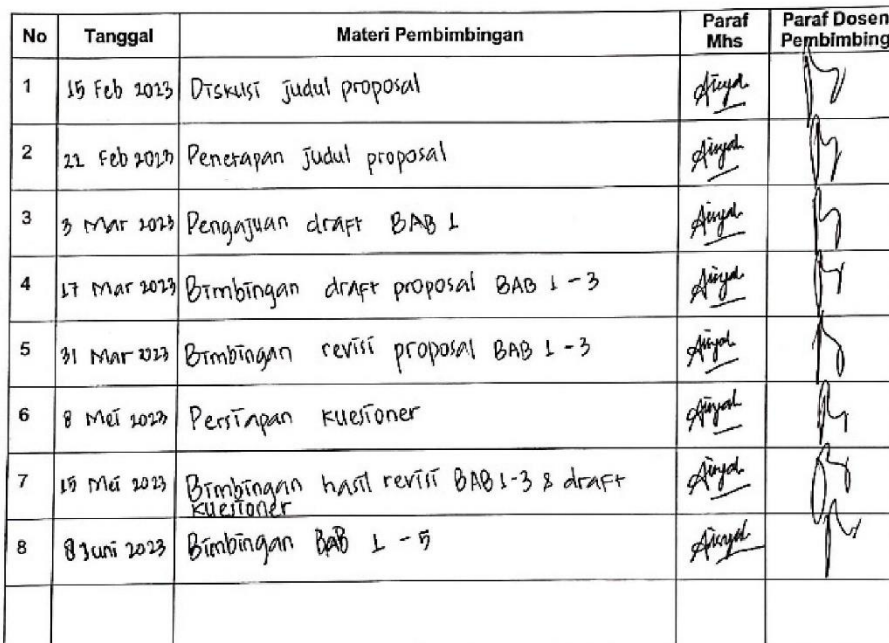 No Tanggal Materi Pembimbingan Paraf Mhs Paraf Dosen Pembimbing
1 15 Feb 2023 Diskusi judul proposal
2 22 Feb 2023 Penetapan judul proposal
3 3 Mar 2023 Pengajuan draft BAB 1
4 17 Mar 2023 Bimbingan draft proposal BAB 1 - 3
5 31 Mar 2023 Bimbingan revisi proposal BAB 1 - 3
6 8 Mei 2023 Persiapan kuesioner
7 15 Mei 2023 Bimbingan hasil revisi BAB 1-3 & draft
kuesioner
8 8 Juni 2023 Bimbingan BAB 1 - 5